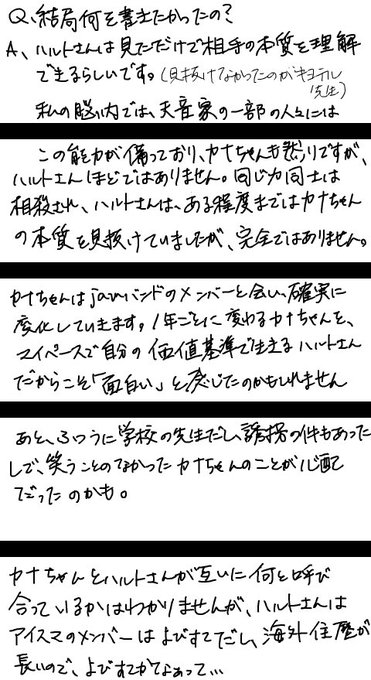 Q、結局何を書きたかったの?
A、ハルトさんは見ただけで相手の本質を理解
できるらしいです。(見抜けなかったのがキヨテル
先生)
私の脳内では、天音家の一部の人々には
この能力が備っており、カナちゃんも然りですが、
ハルトさんほどではありません。同じ力同士は
相殺され、ハルトさんは、ある程度まではカナちゃん
の本質を見抜けていましたが、完全ではありません。
カナちゃんはjamバンドのメンバーと会い、確実に
変化していきます。1年ごとに変わるカナちゃんを、
マイペースで自分の価値基準で生きるハルトさん
だからこそ「面白い」と感じたのかもしれません
あと、ふつうに学校の先生だし、誘拐の件もあった
しで、笑うことのなかったカナちゃんのことが心配
でだったのかも。
カナちゃんとハルトさんが互いに何と呼び
合っているかはわかりませんが、ハルトさんは
アイスマのメンバーはよびすてだし、海外住歴が
長いので、よびすてかなぁって…